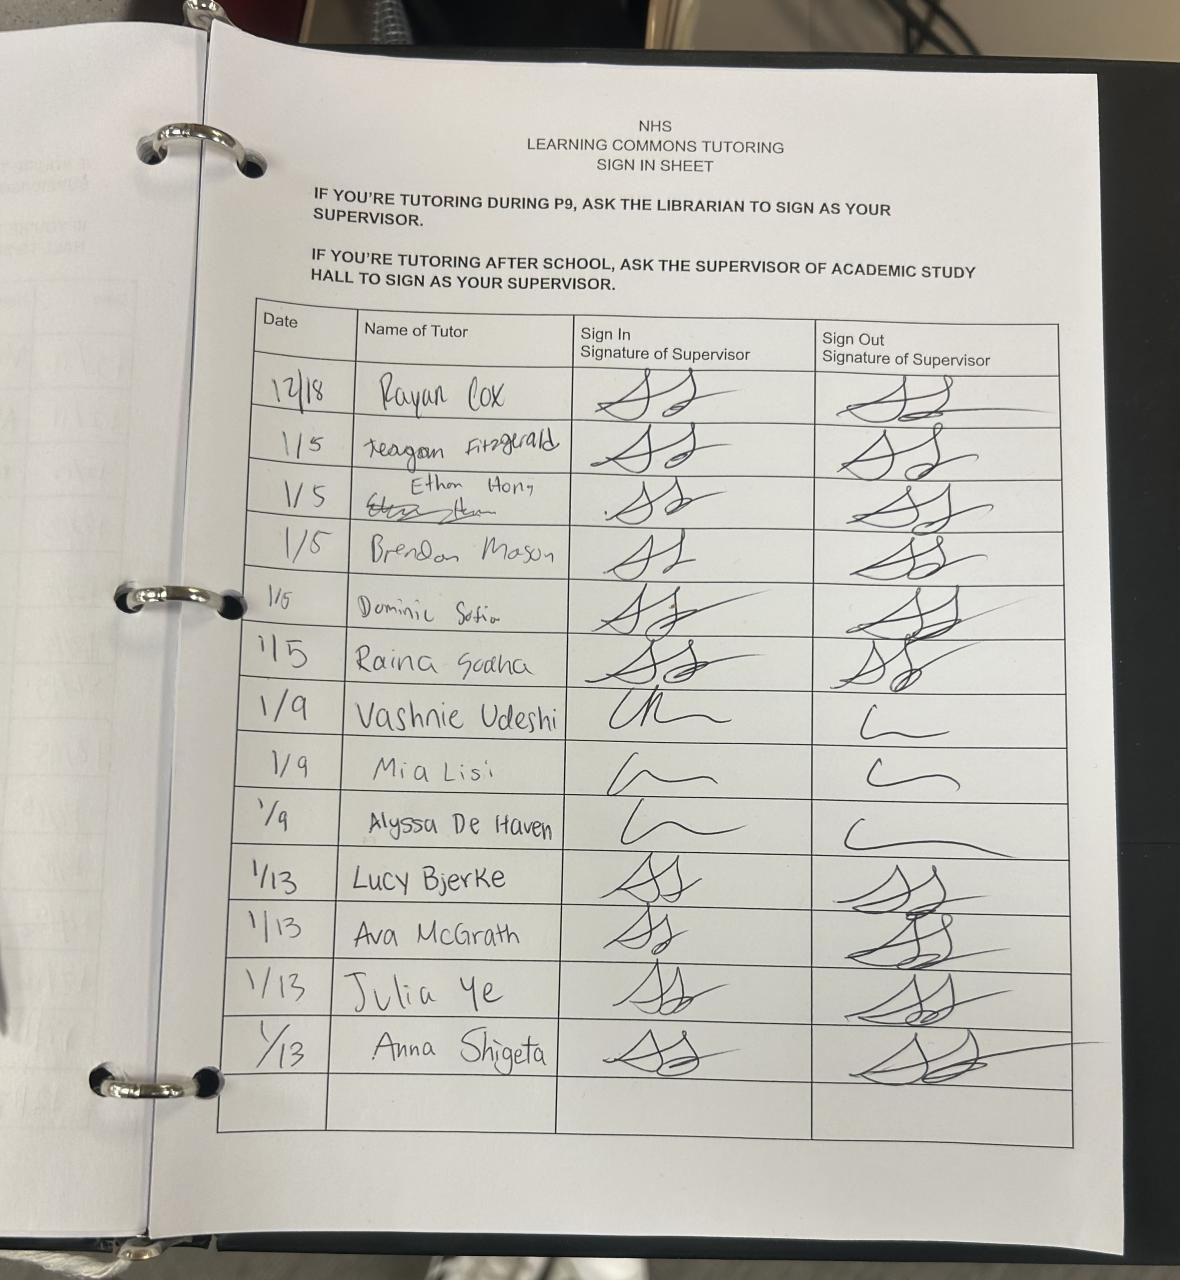 NHS
LEARNING COMMONS TUTORING
SIGN IN SHEET
IF YOU'RE TUTORING DURING P9, ASK THE LIBRARIAN TO SIGN AS YOUR
SUPERVISOR.
IF YOU'RE TUTORING AFTER SCHOOL, ASK THE SUPERVISOR OF ACADEMIC STUDY
HALL TO SIGN AS YOUR SUPERVISOR.
Date Name of Tutor Sign In Sign Out
Signature of Supervisor Signature of Supervisor
12/18 Rayan Cox
1/5 Teagan Fitzgerald
1/5 Ethan Hong
1/5 Brendan Mason
1/5 Dominic Sofia
1/5 Raina Sodha
1/9 Vashnie Udeshi
1/9 Mia Lisi
1/9 Alyssa De Haven
1/13 Lucy Bjerke
1/13 Ava McGrath
1/13 Julia Ye
1/13 Anna Shigeta